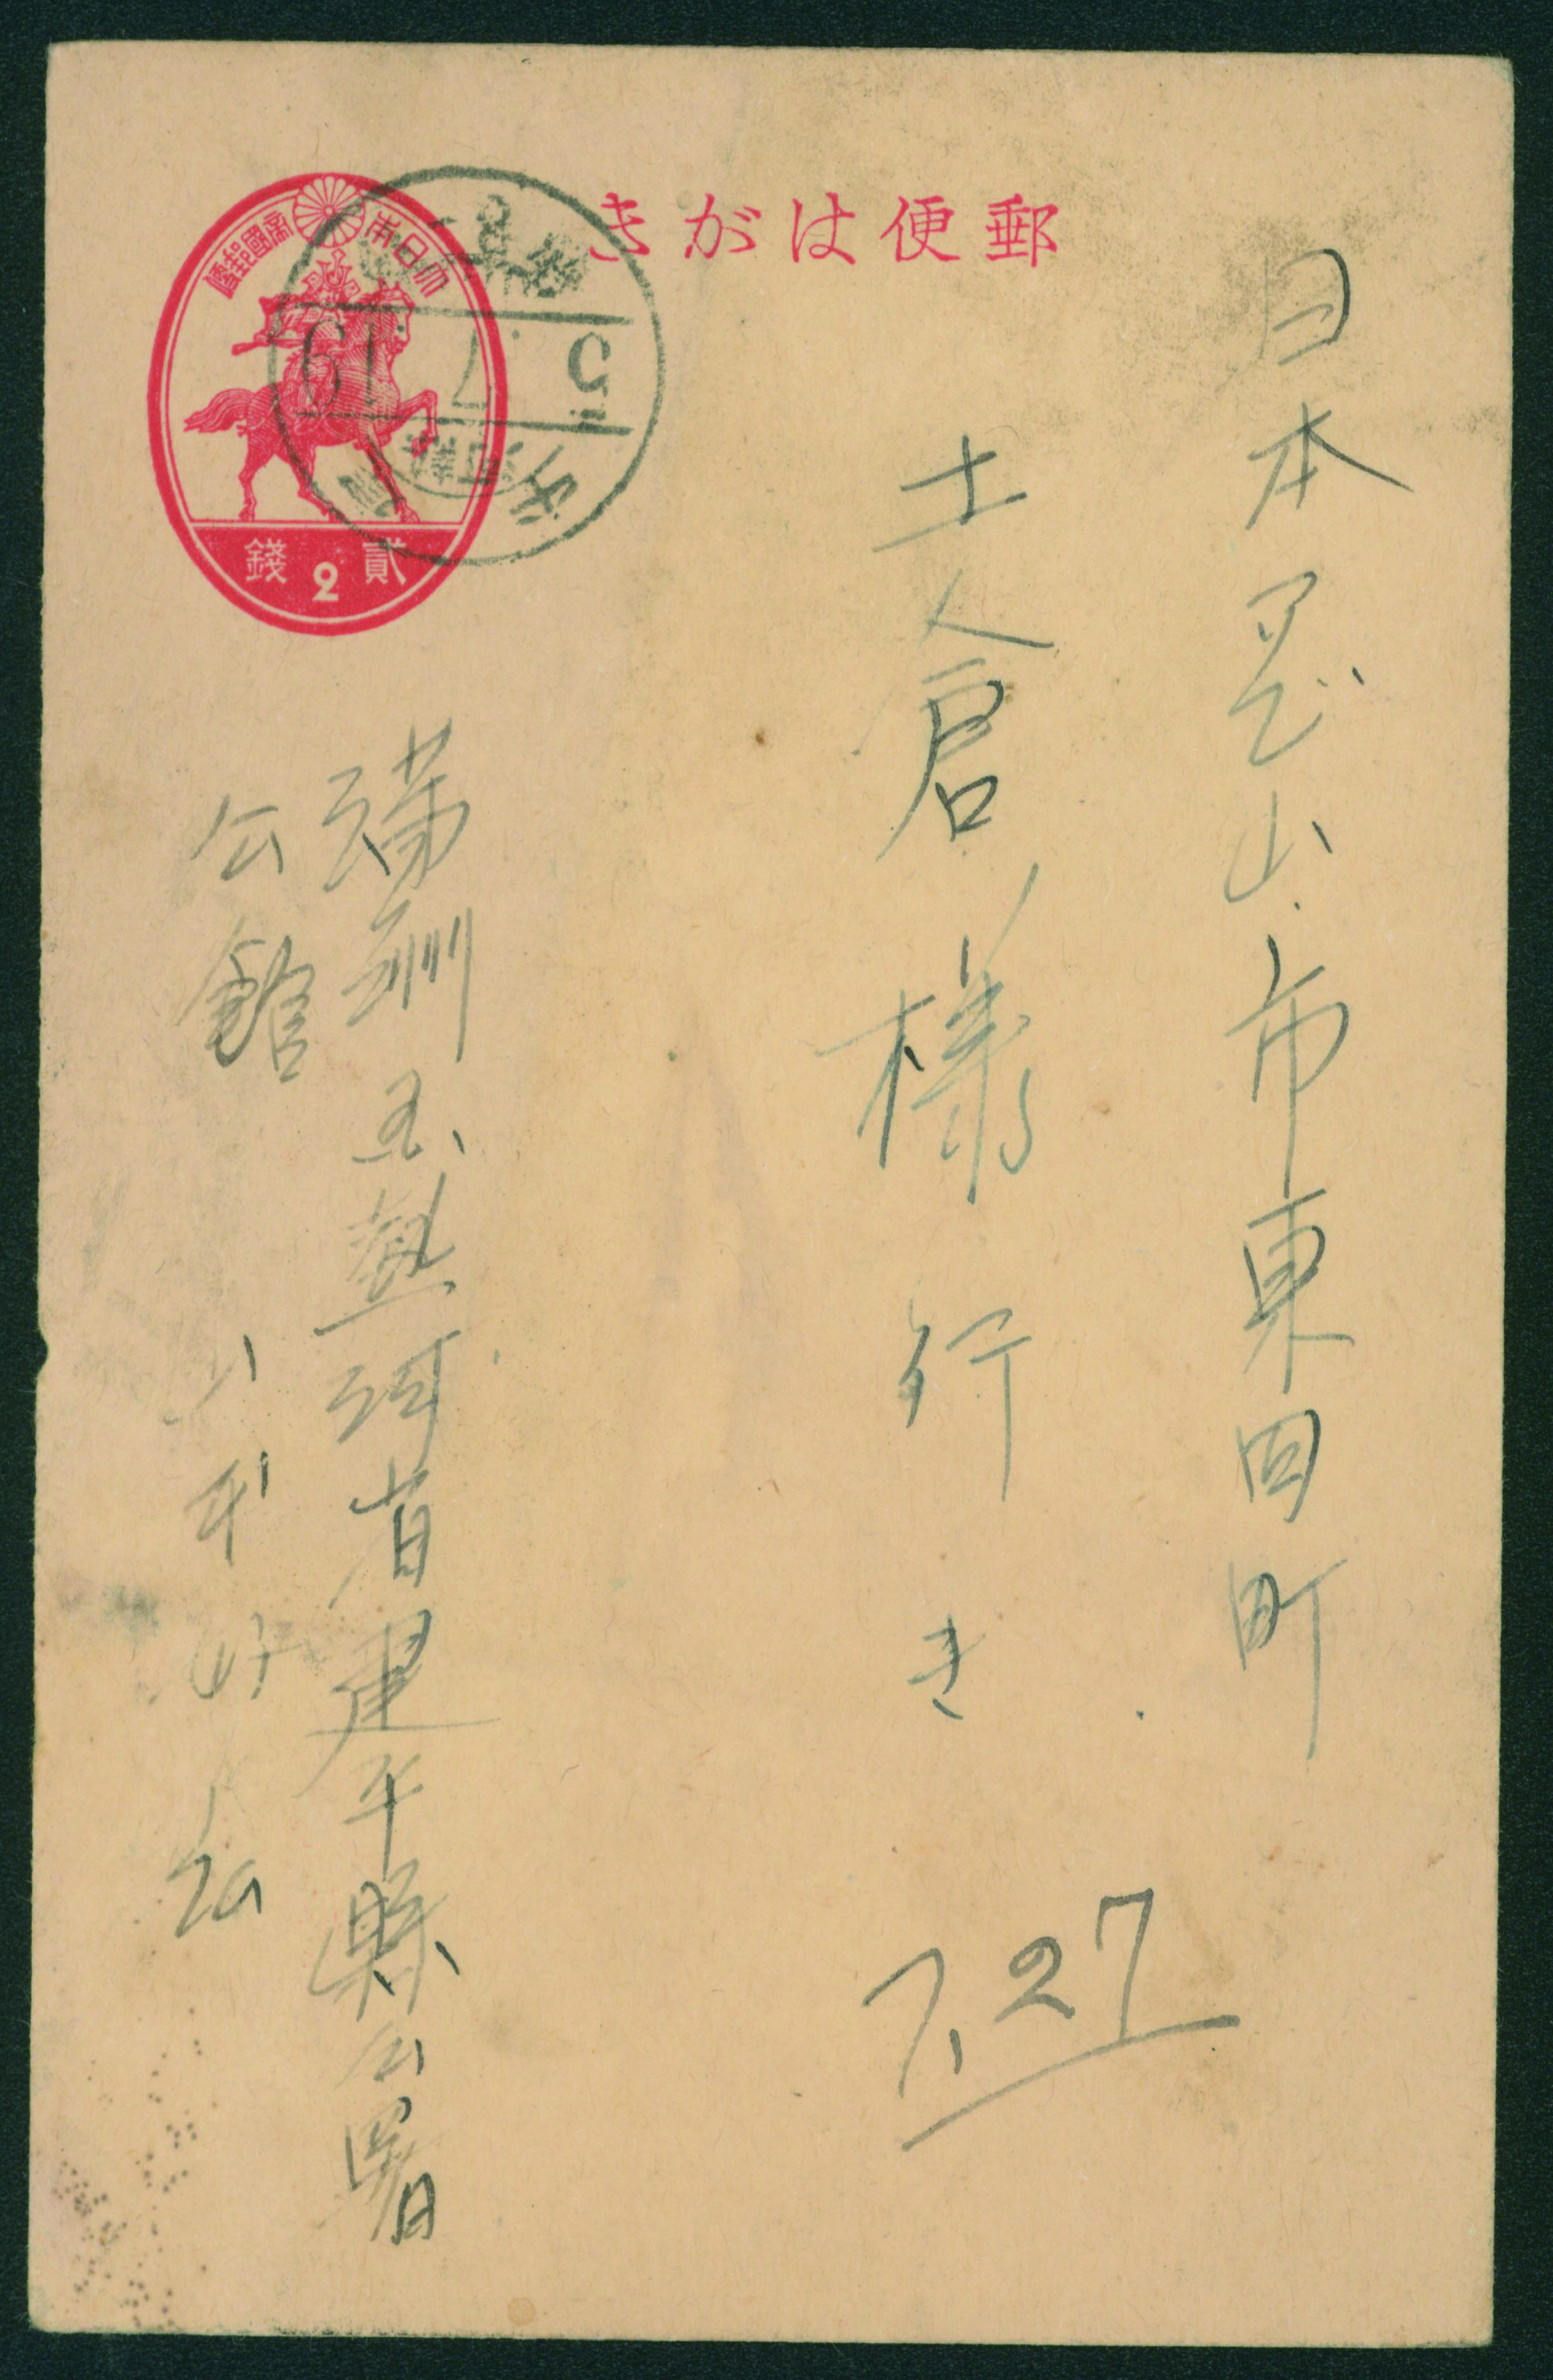 郵便はがき
大日本帝國郵便
貳2錢
5 7 19
日本 岡山市東田町
土倉様行き
7.27
満洲国熱河省建平縣公署
公館